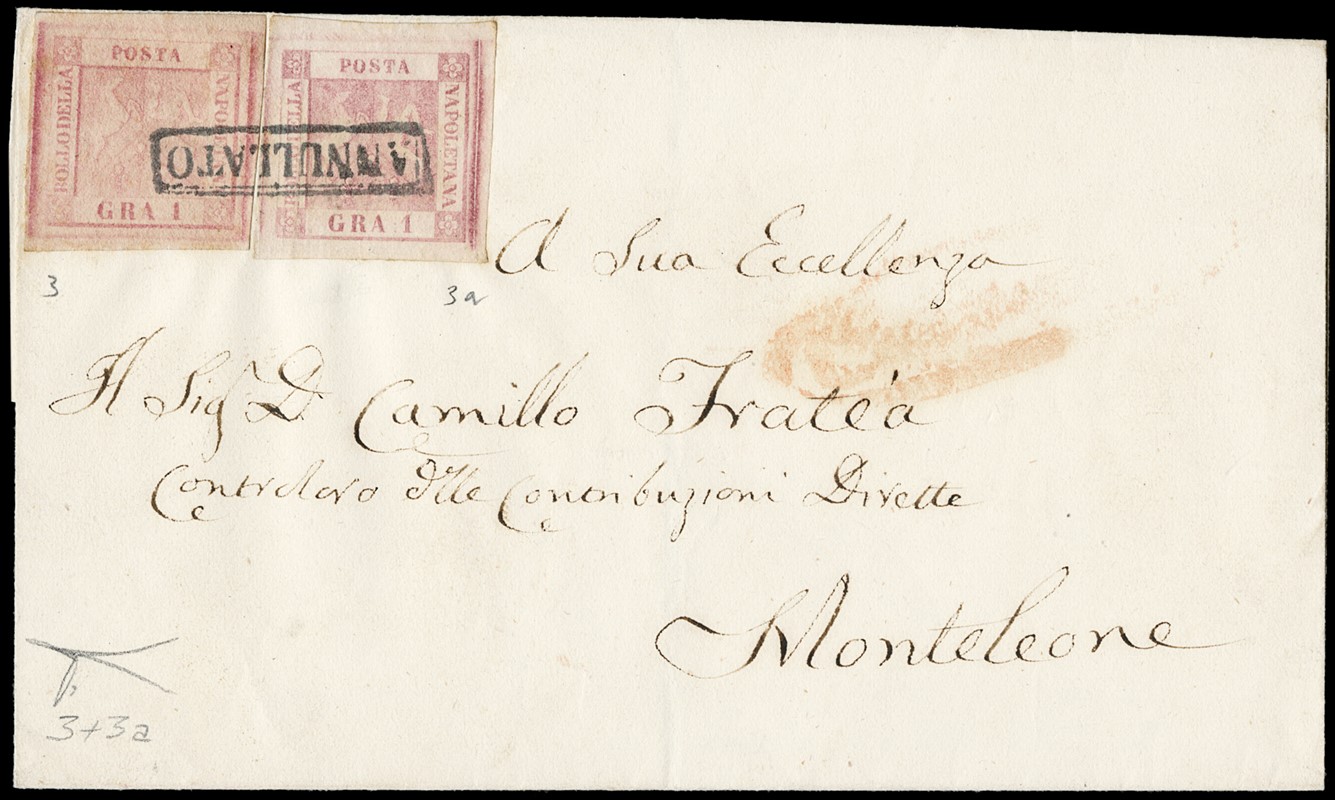 POSTA
BOLLO DELLA
NAPOL
GRA 1
POSTA
DELLA
NAPOLETANA
GRA 1
ANNULLATO
3
3a
A Sua Eccellenza
Il Sigr Dn Camillo Fratéa
Controloro delle Contribuzioni Dirette
Monteleone
3+3a